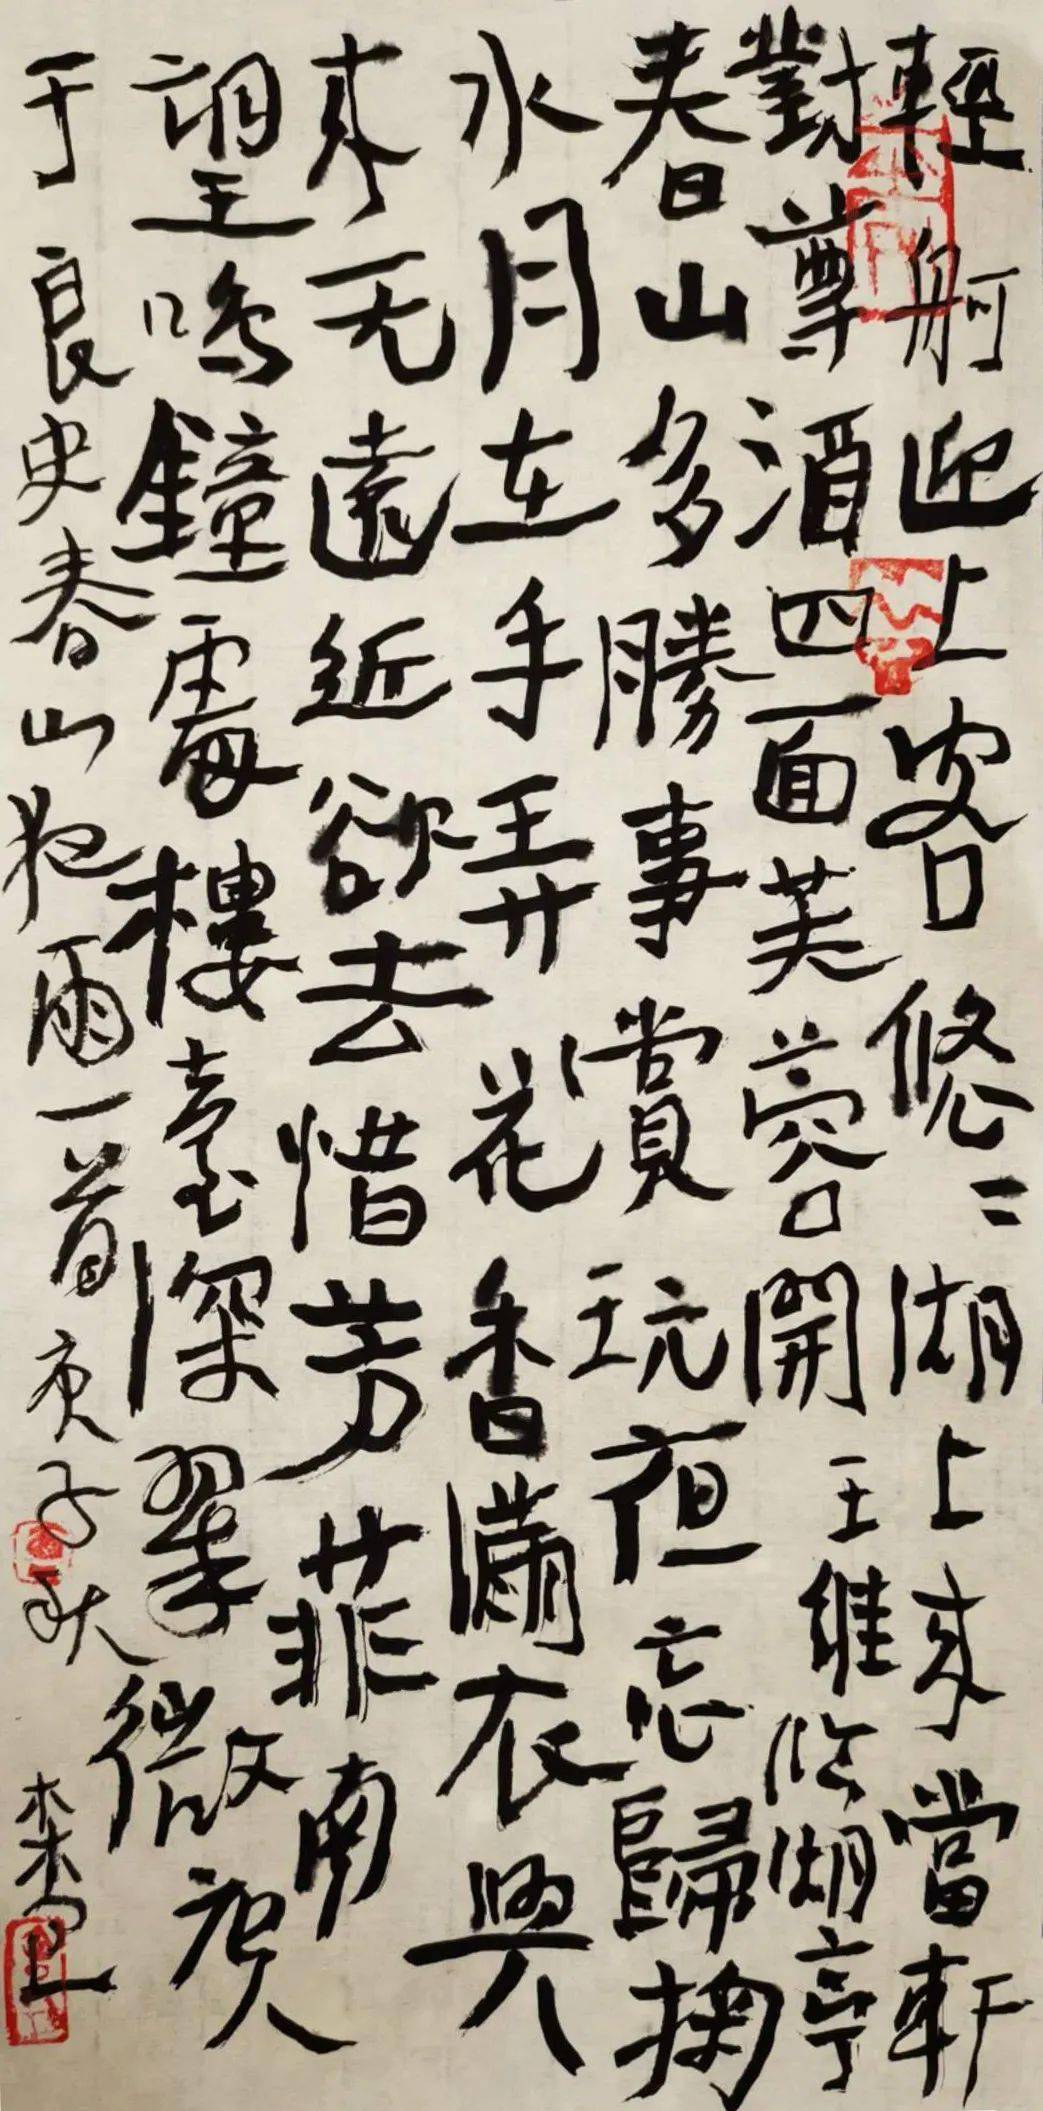 輕舸迎上客悠〻湖上来當軒
對尊酒四面芙蓉開 王維臨湖亭
春山多勝事賞玩夜忘歸掬
水月在手弄花香滿衣興
来无遠近欲去惜芳菲南
望鳴鐘處樓臺深翠微 唐人
于良史春山夜雨一首 庚子秋